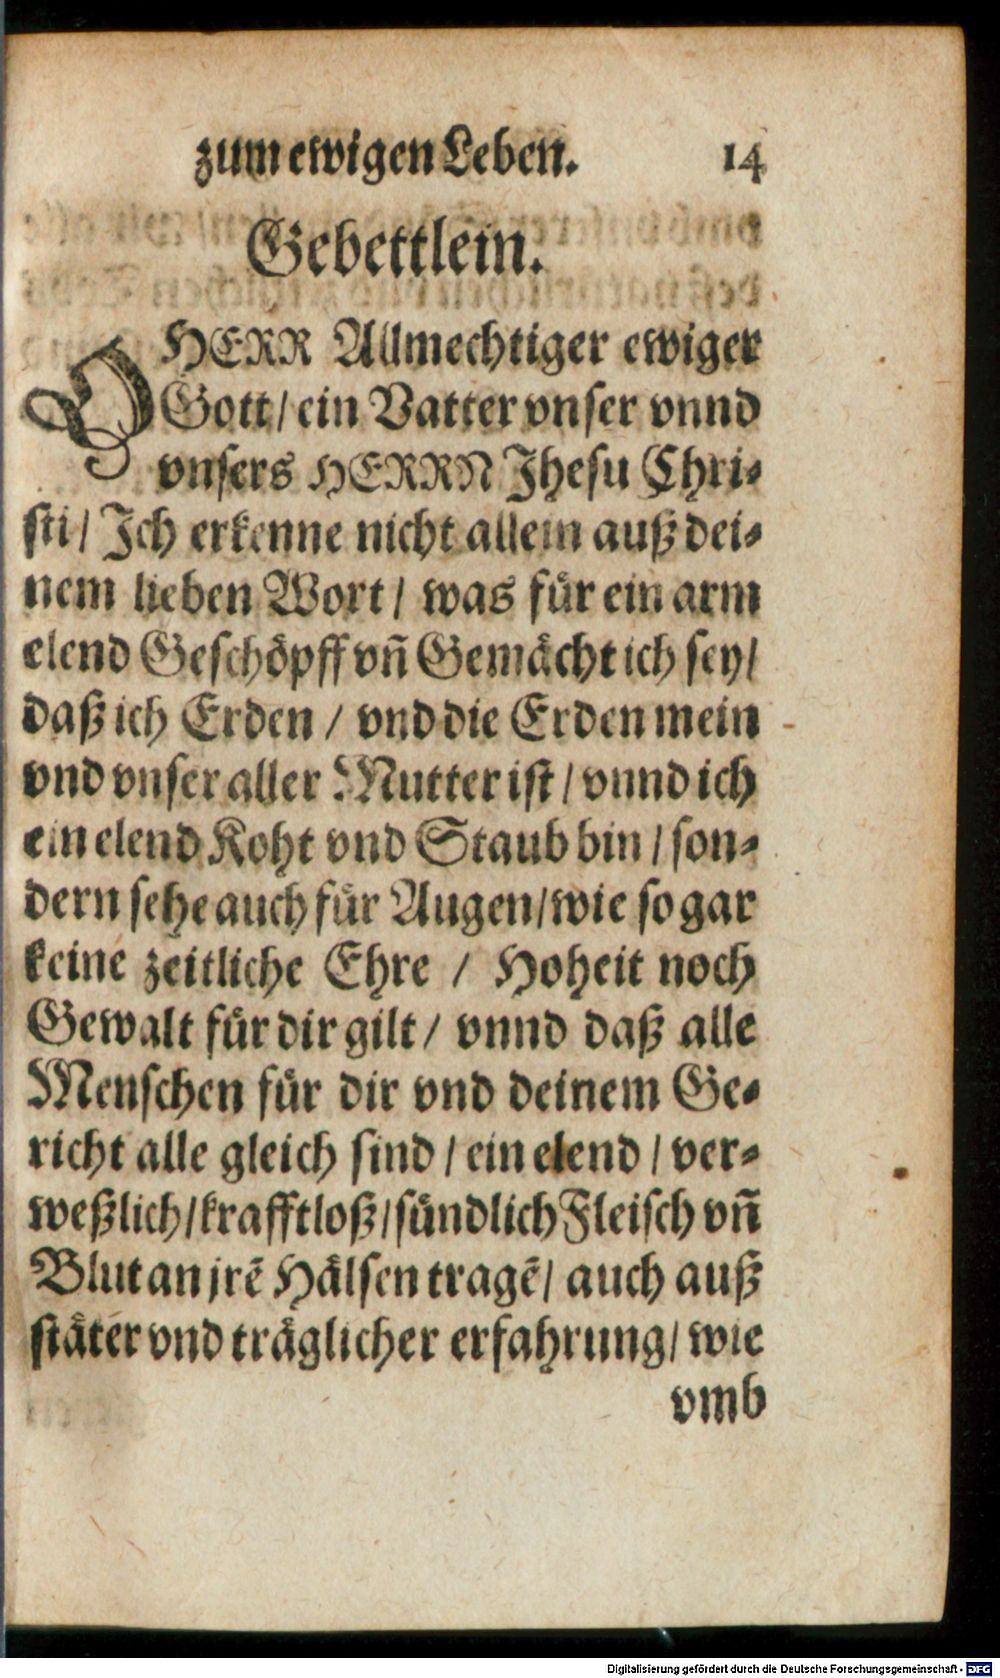 zum ewigen Leben. 14
Gebettlein.
O HERR Allmechtiger ewiger
Gott / ein Vatter vnser vnnd
vnsers HERRN Jhesu Chri-
sti / Jch erkenne nicht allein auß dei-
nem lieben Wort / was für ein arm
elend Geschöpff vñ Gemächt ich sey /
daß ich Erden / vnd die Erden mein
vnd vnser aller Mutter ist / vnnd ich
ein elend Koht vnd Staub bin / son-
dern sehe auch für Augen / wie so gar
keine zeitliche Ehre / Hoheit noch
Gewalt für dir gilt / vnnd daß alle
Menschen für dir vnd deinem Ge-
richt alle gleich sind / ein elend / ver-
weßlich / krafftloß / sündlich Fleisch vñ
Blut an jrẽ Hälsen tragẽ / auch auß
stäter vnd träglicher erfahrung / wie
vmb
Digitalisierung gefördert durch die Deutsche Forschungsgemeinschaft - DFG